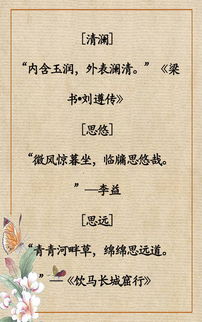 [清澜]
“内含玉润，外表澜清。”《梁
书•刘遵传》
[思悠]
“微风惊暮坐，临牖思悠哉。
”—李益
[思远]
“青青河畔草，绵绵思远道。
”—《饮马长城窟行》